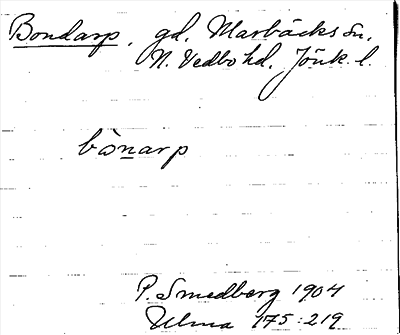 Bondarp, gd. Marbäcks sn,
N. Vedbo hd, Jönk. l.
bònarp
P. Smedberg 1904
Ulma 175:219